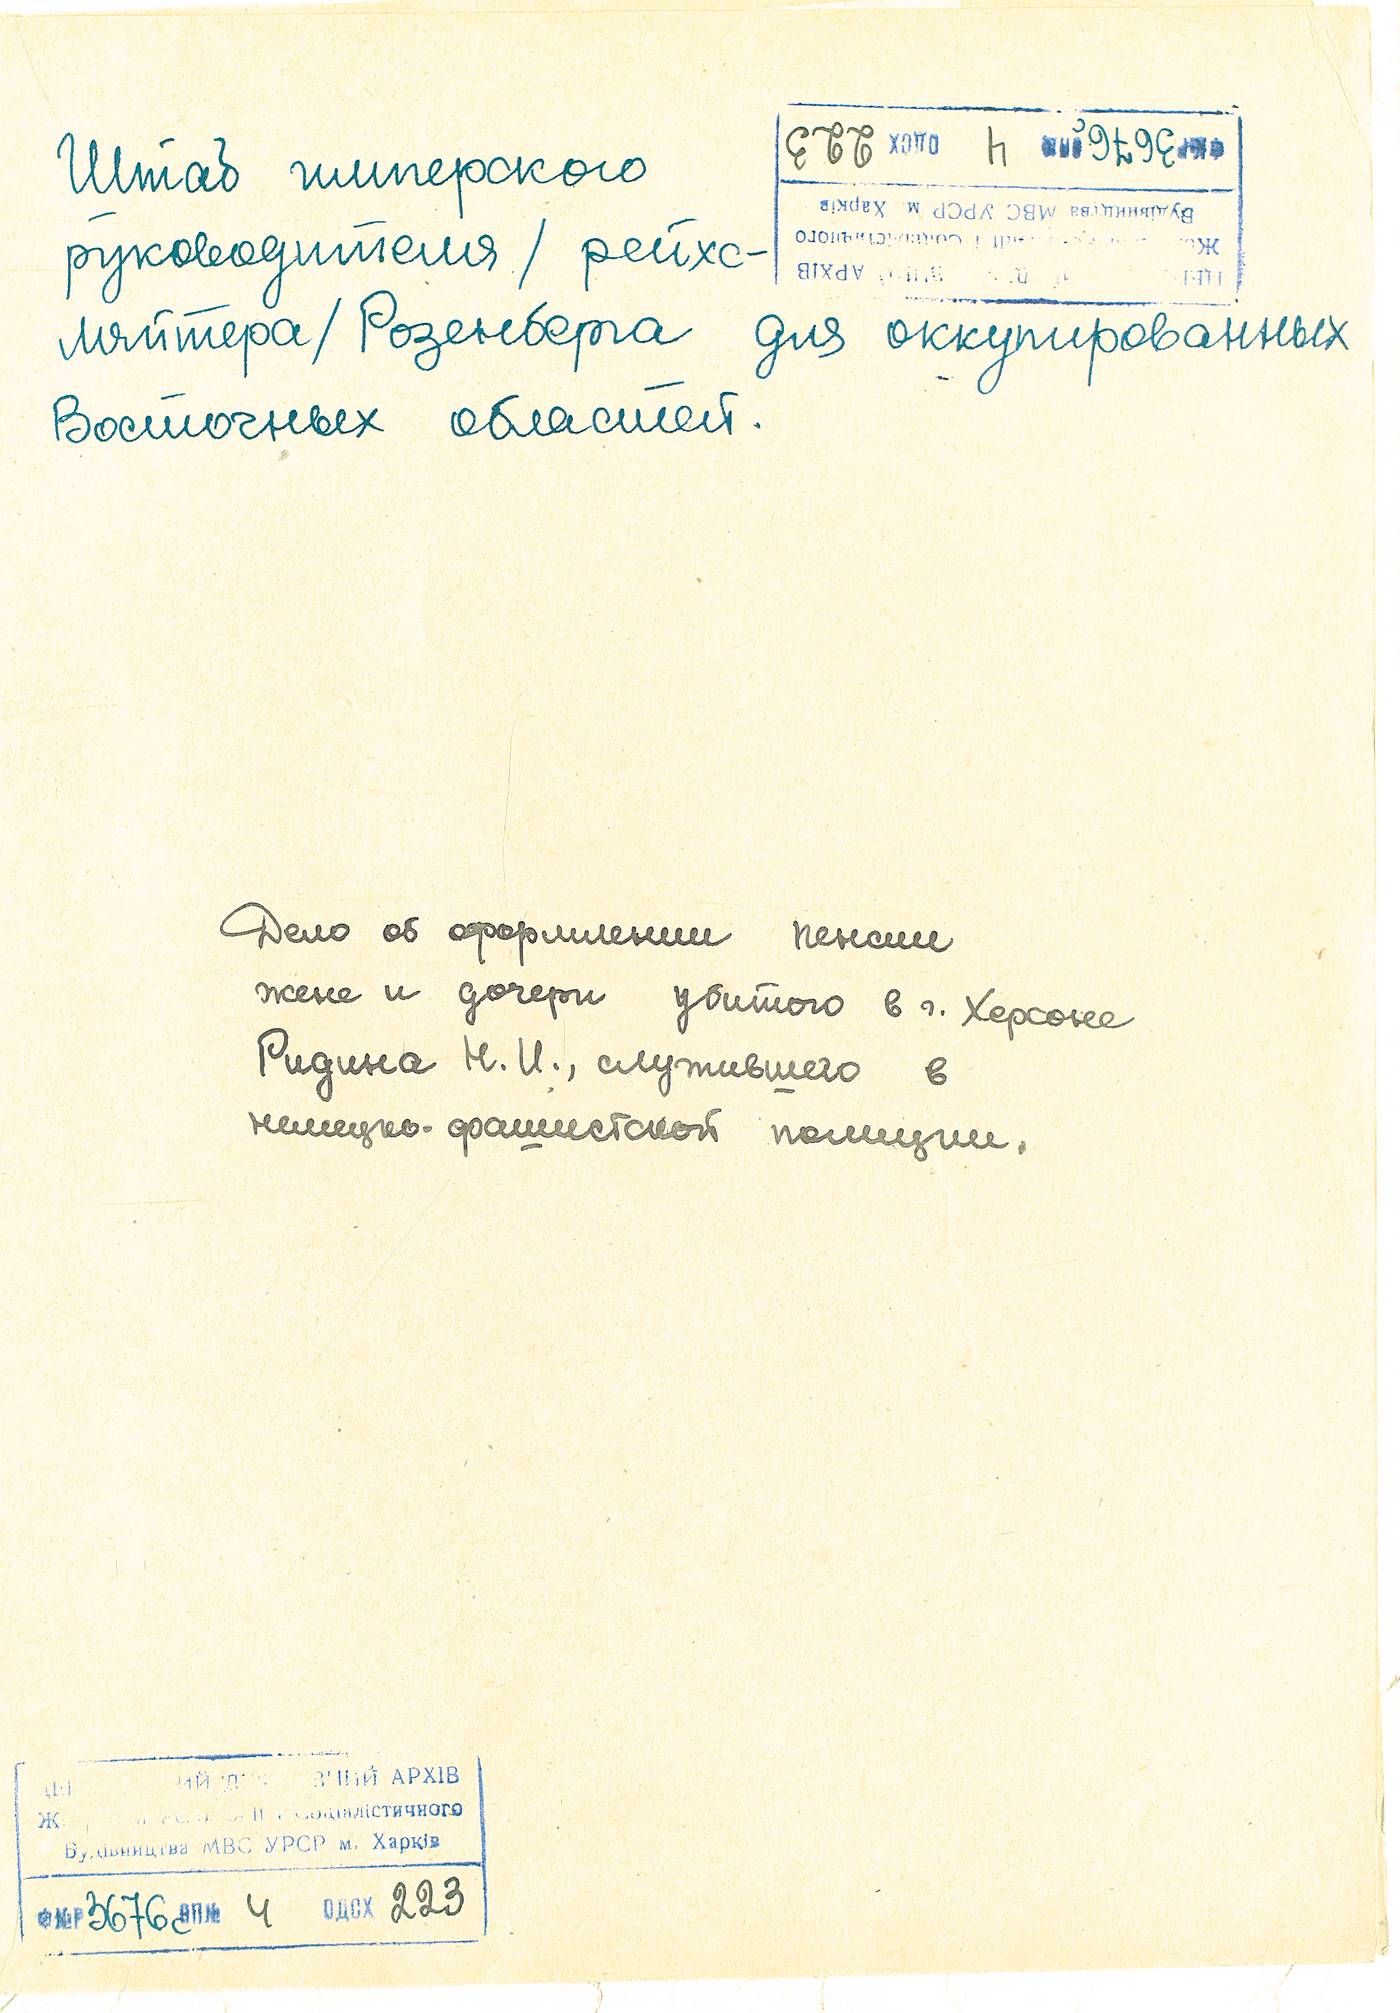 Штаб имперского
руководителя / рейхс-
ляйтера / Розенберга для оккупированных
Восточных областей.
Ф№Р 3676с ОП№ 4 ОДСХ 223
АРХІВ
і Соціалістичного
Будівництва МВС УРСР м. Харків
Дело об оформлении пенсии
жене и дочери убитого в г. Херсоне
Ридина Н. И., служившего в
немецко-фашистской полиции.
АРХІВ
і Соціалістичного
Будівництва МВС УРСР м. Харків
Ф№Р 3676с ОП№ 4 ОДСХ 223